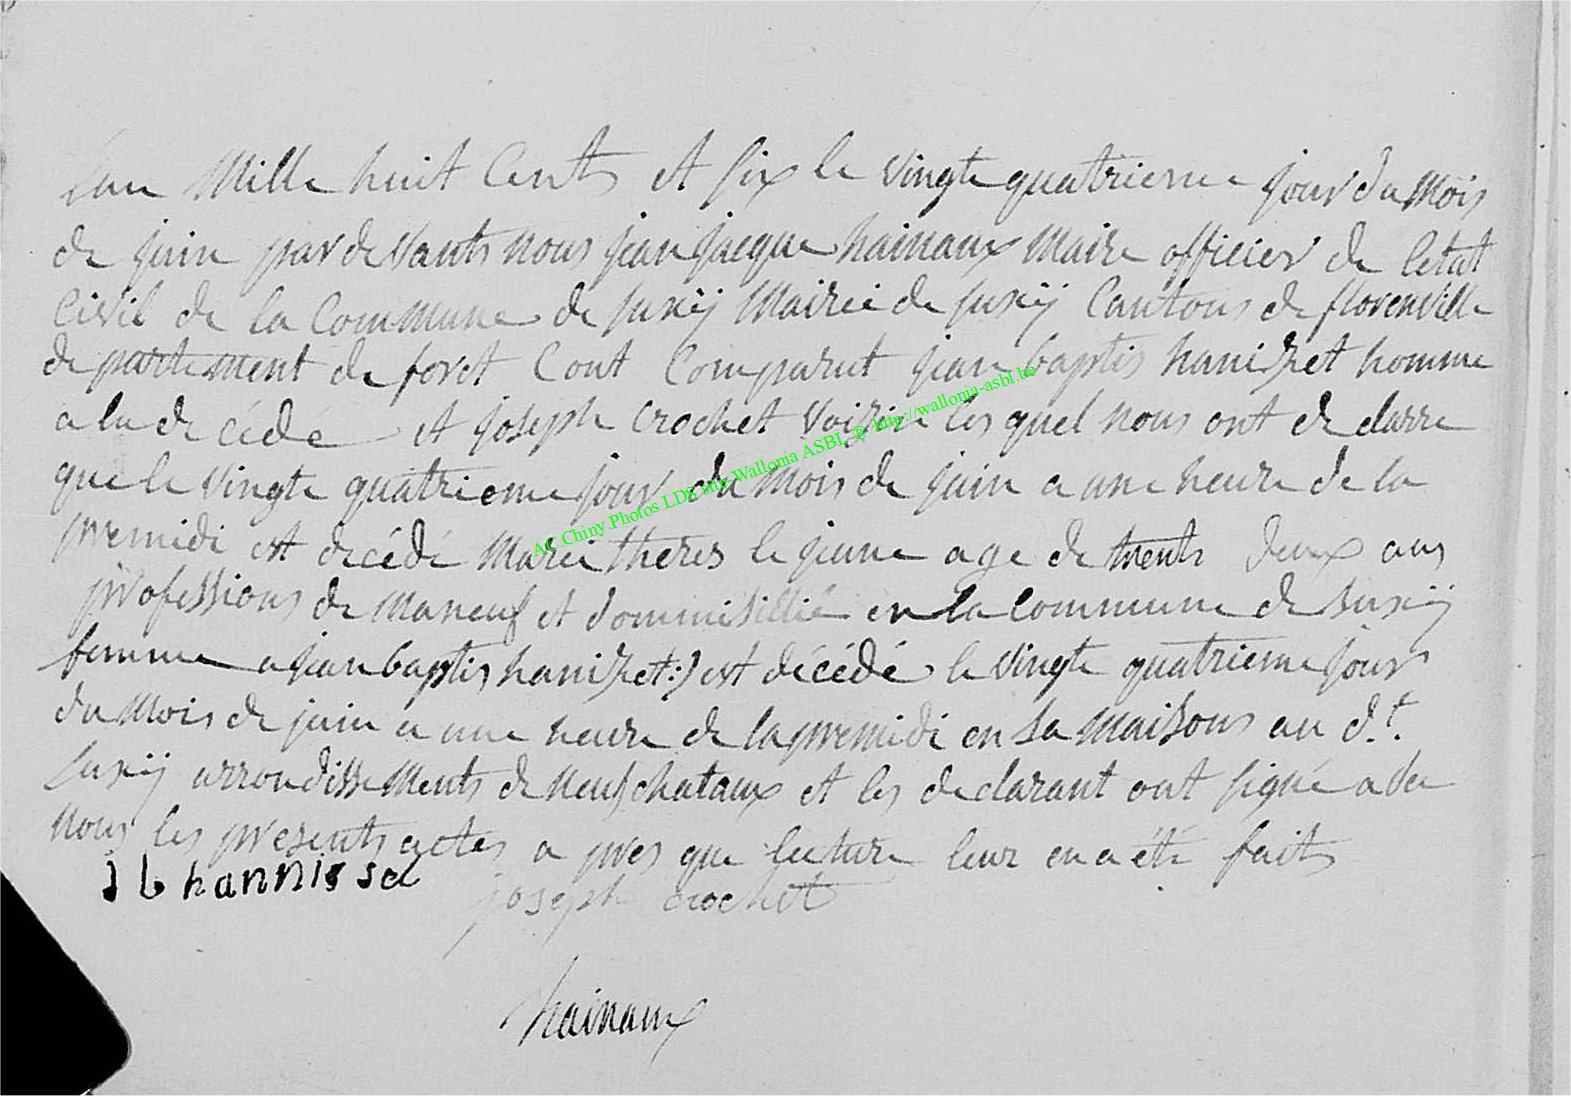 Lan Mille huit Cents et six le vingte quatrieme jour du Mois
de juin par de vants nous jean jacque hainaux Maire officier de letat
Civil de la Commune de suxÿ Mairie de suxÿ Cantons de florenville
de partement de foret Cont Comparut jean baptis hanizet homme
a la de cede et joseph crochet voizin les quel nous ont de clarre
que le vingte quatrieme jour du Mois de juin a une heure de la
premidi est decédé Marei theres le jeune age de trents deux ans
professions de Maneuf et dommisillié en la Commune de suxÿ
femme a jean baptis hanizet :) est décédé le vingte quatrieme jours
du Mois de juin a une heure de la premidi en sa Maisons au d.t
suxÿ arrondisse Ments de neufchataux et les declarant ont signé a
nous les presents actes a pres que lecture leur en a été faits
j b hannisset joseph crochet
hainaux
Ac Chiny Photos LDS http Wallonia ASBL © http://wallonia-asbl.be